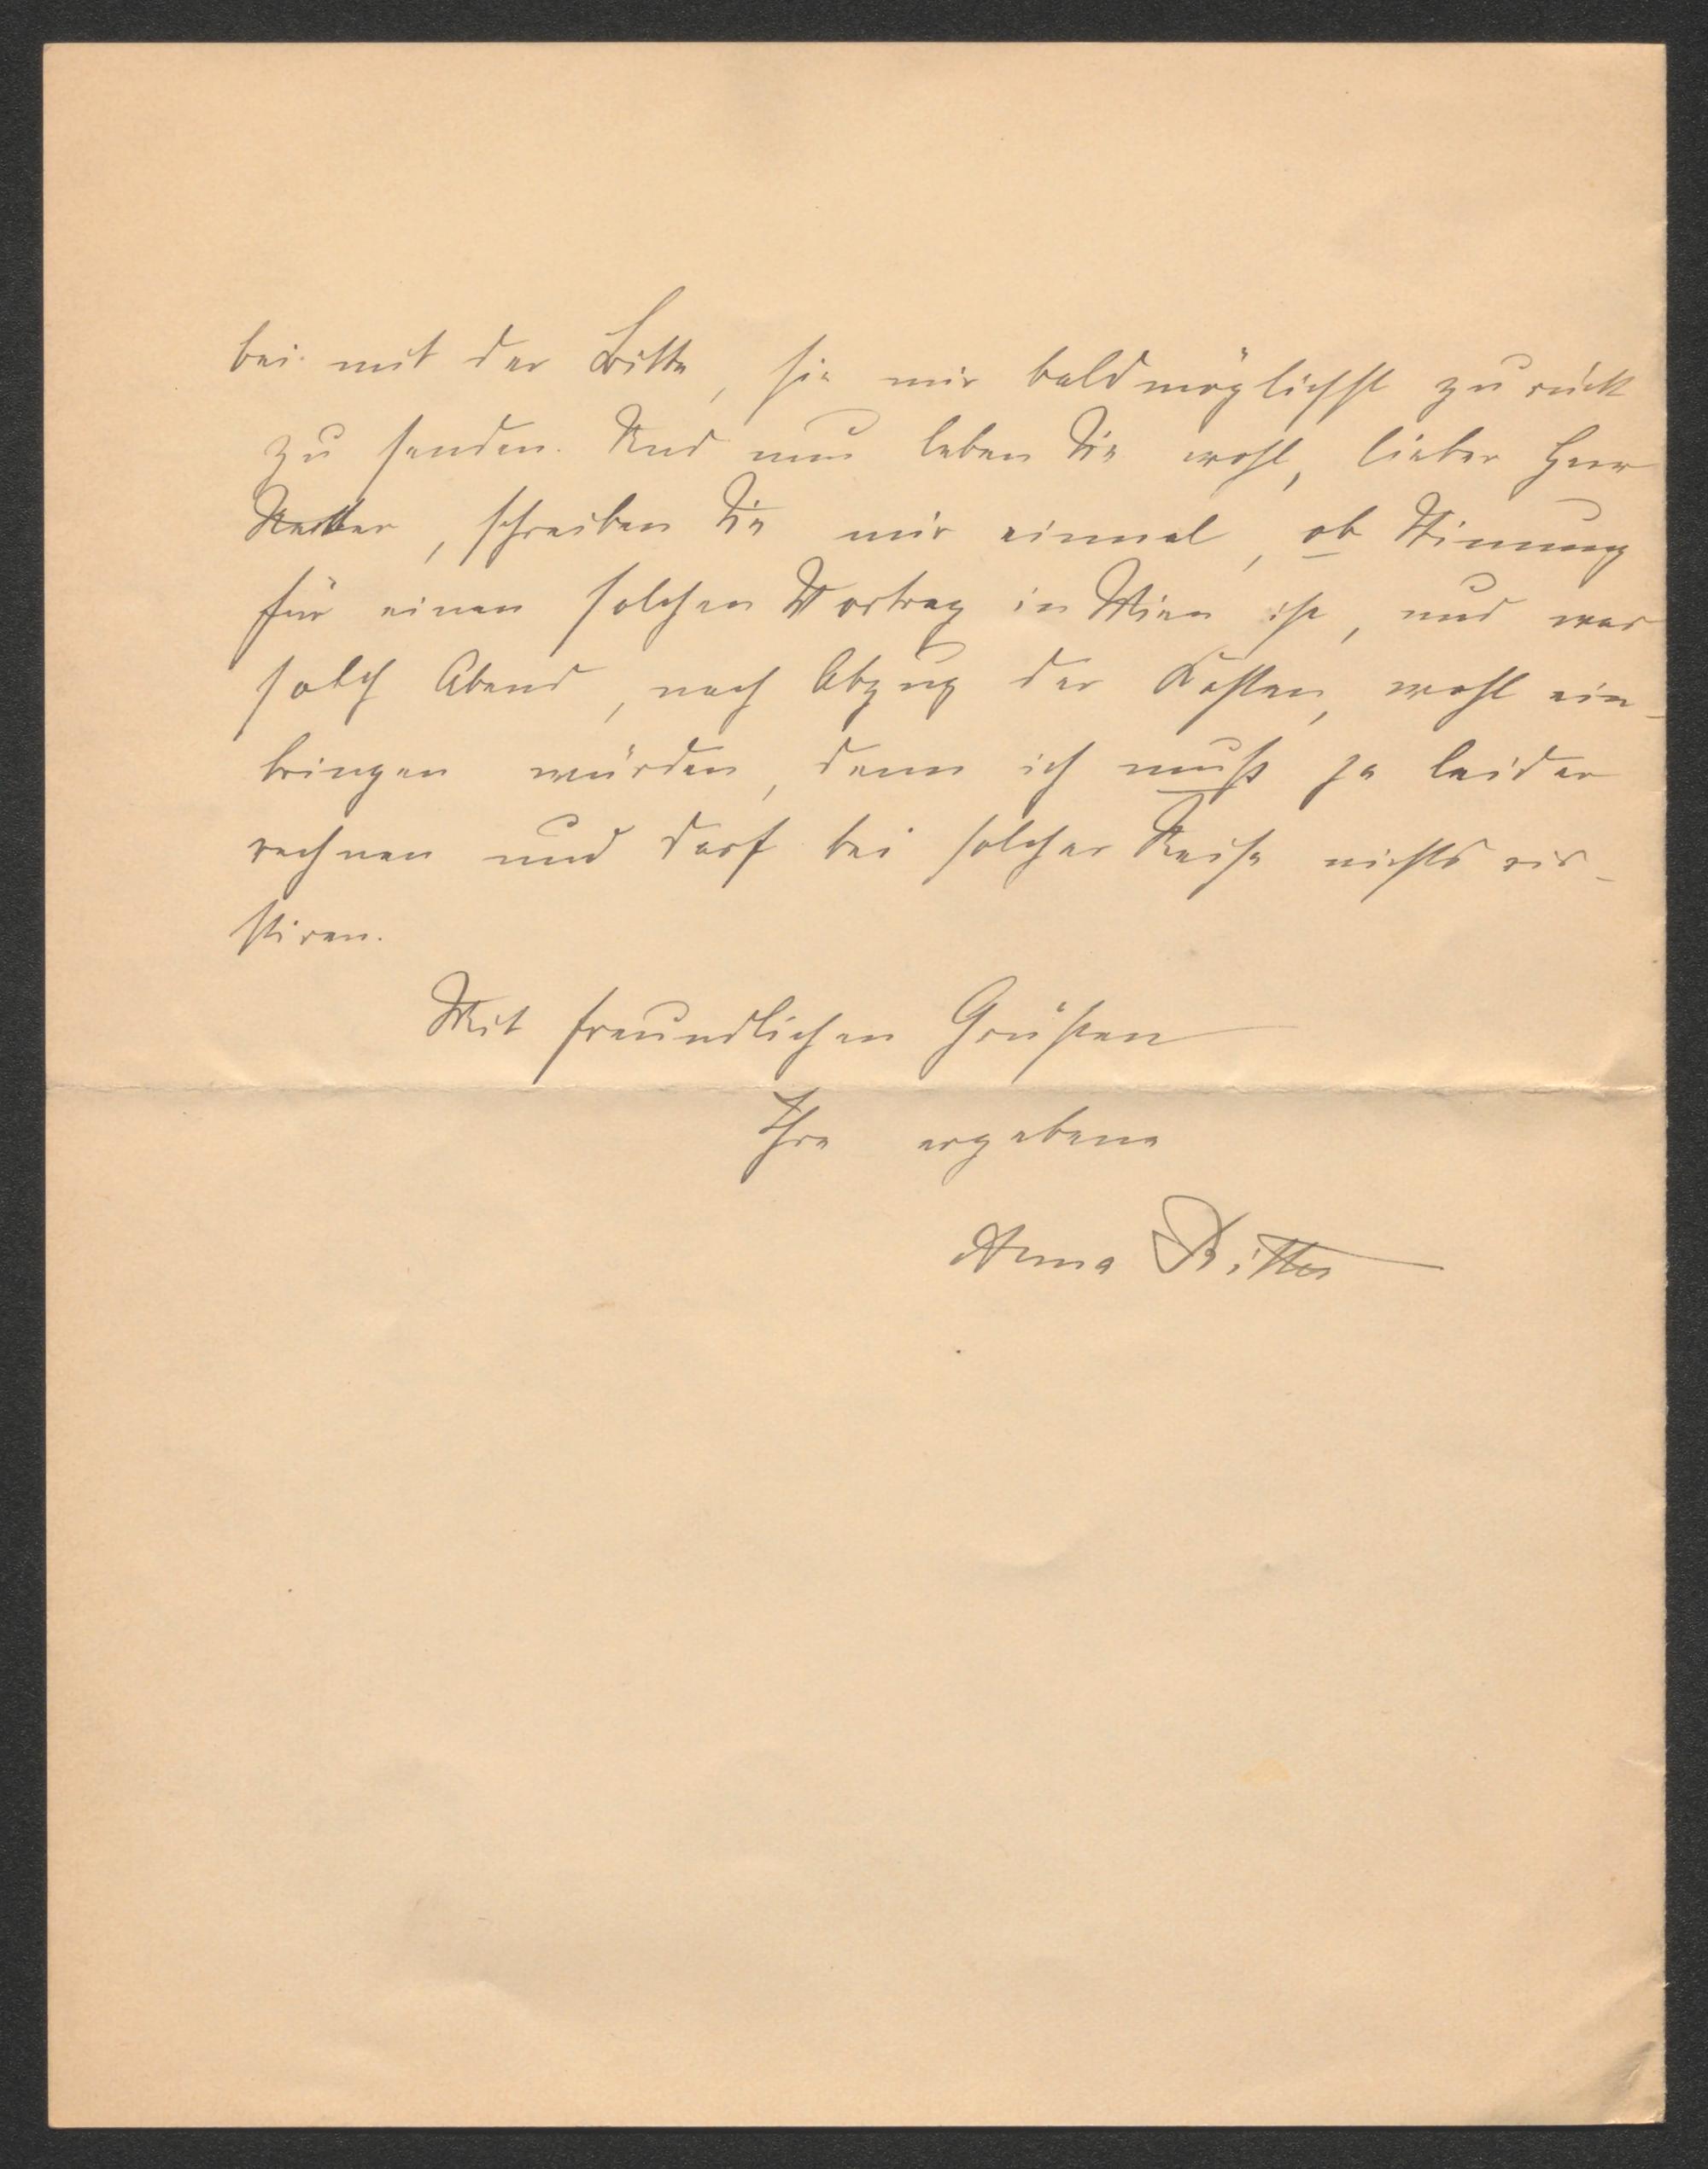 bei mit der Bitte, sie mir baldmöglichst zurück
zu senden. Und nun leben Sie wohl, lieber Herr
schreiben Sie mir einmal, ob Stimmung
für einen solchen Vortrag in Wien ist, und was
solch Abend, nach Abzug der Kosten, wohl ein-
bringen würden, denn ich muß ja leider
rechnen und darf bei solcher Reise nichts ris-
kiren.
Mit freundlichen Grüßen
Ihre ergebene
Anna Ritter